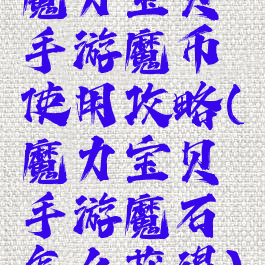 魔力宝贝
手游魔币
使用攻略(
魔力宝贝
手游魔石
怎么获得)